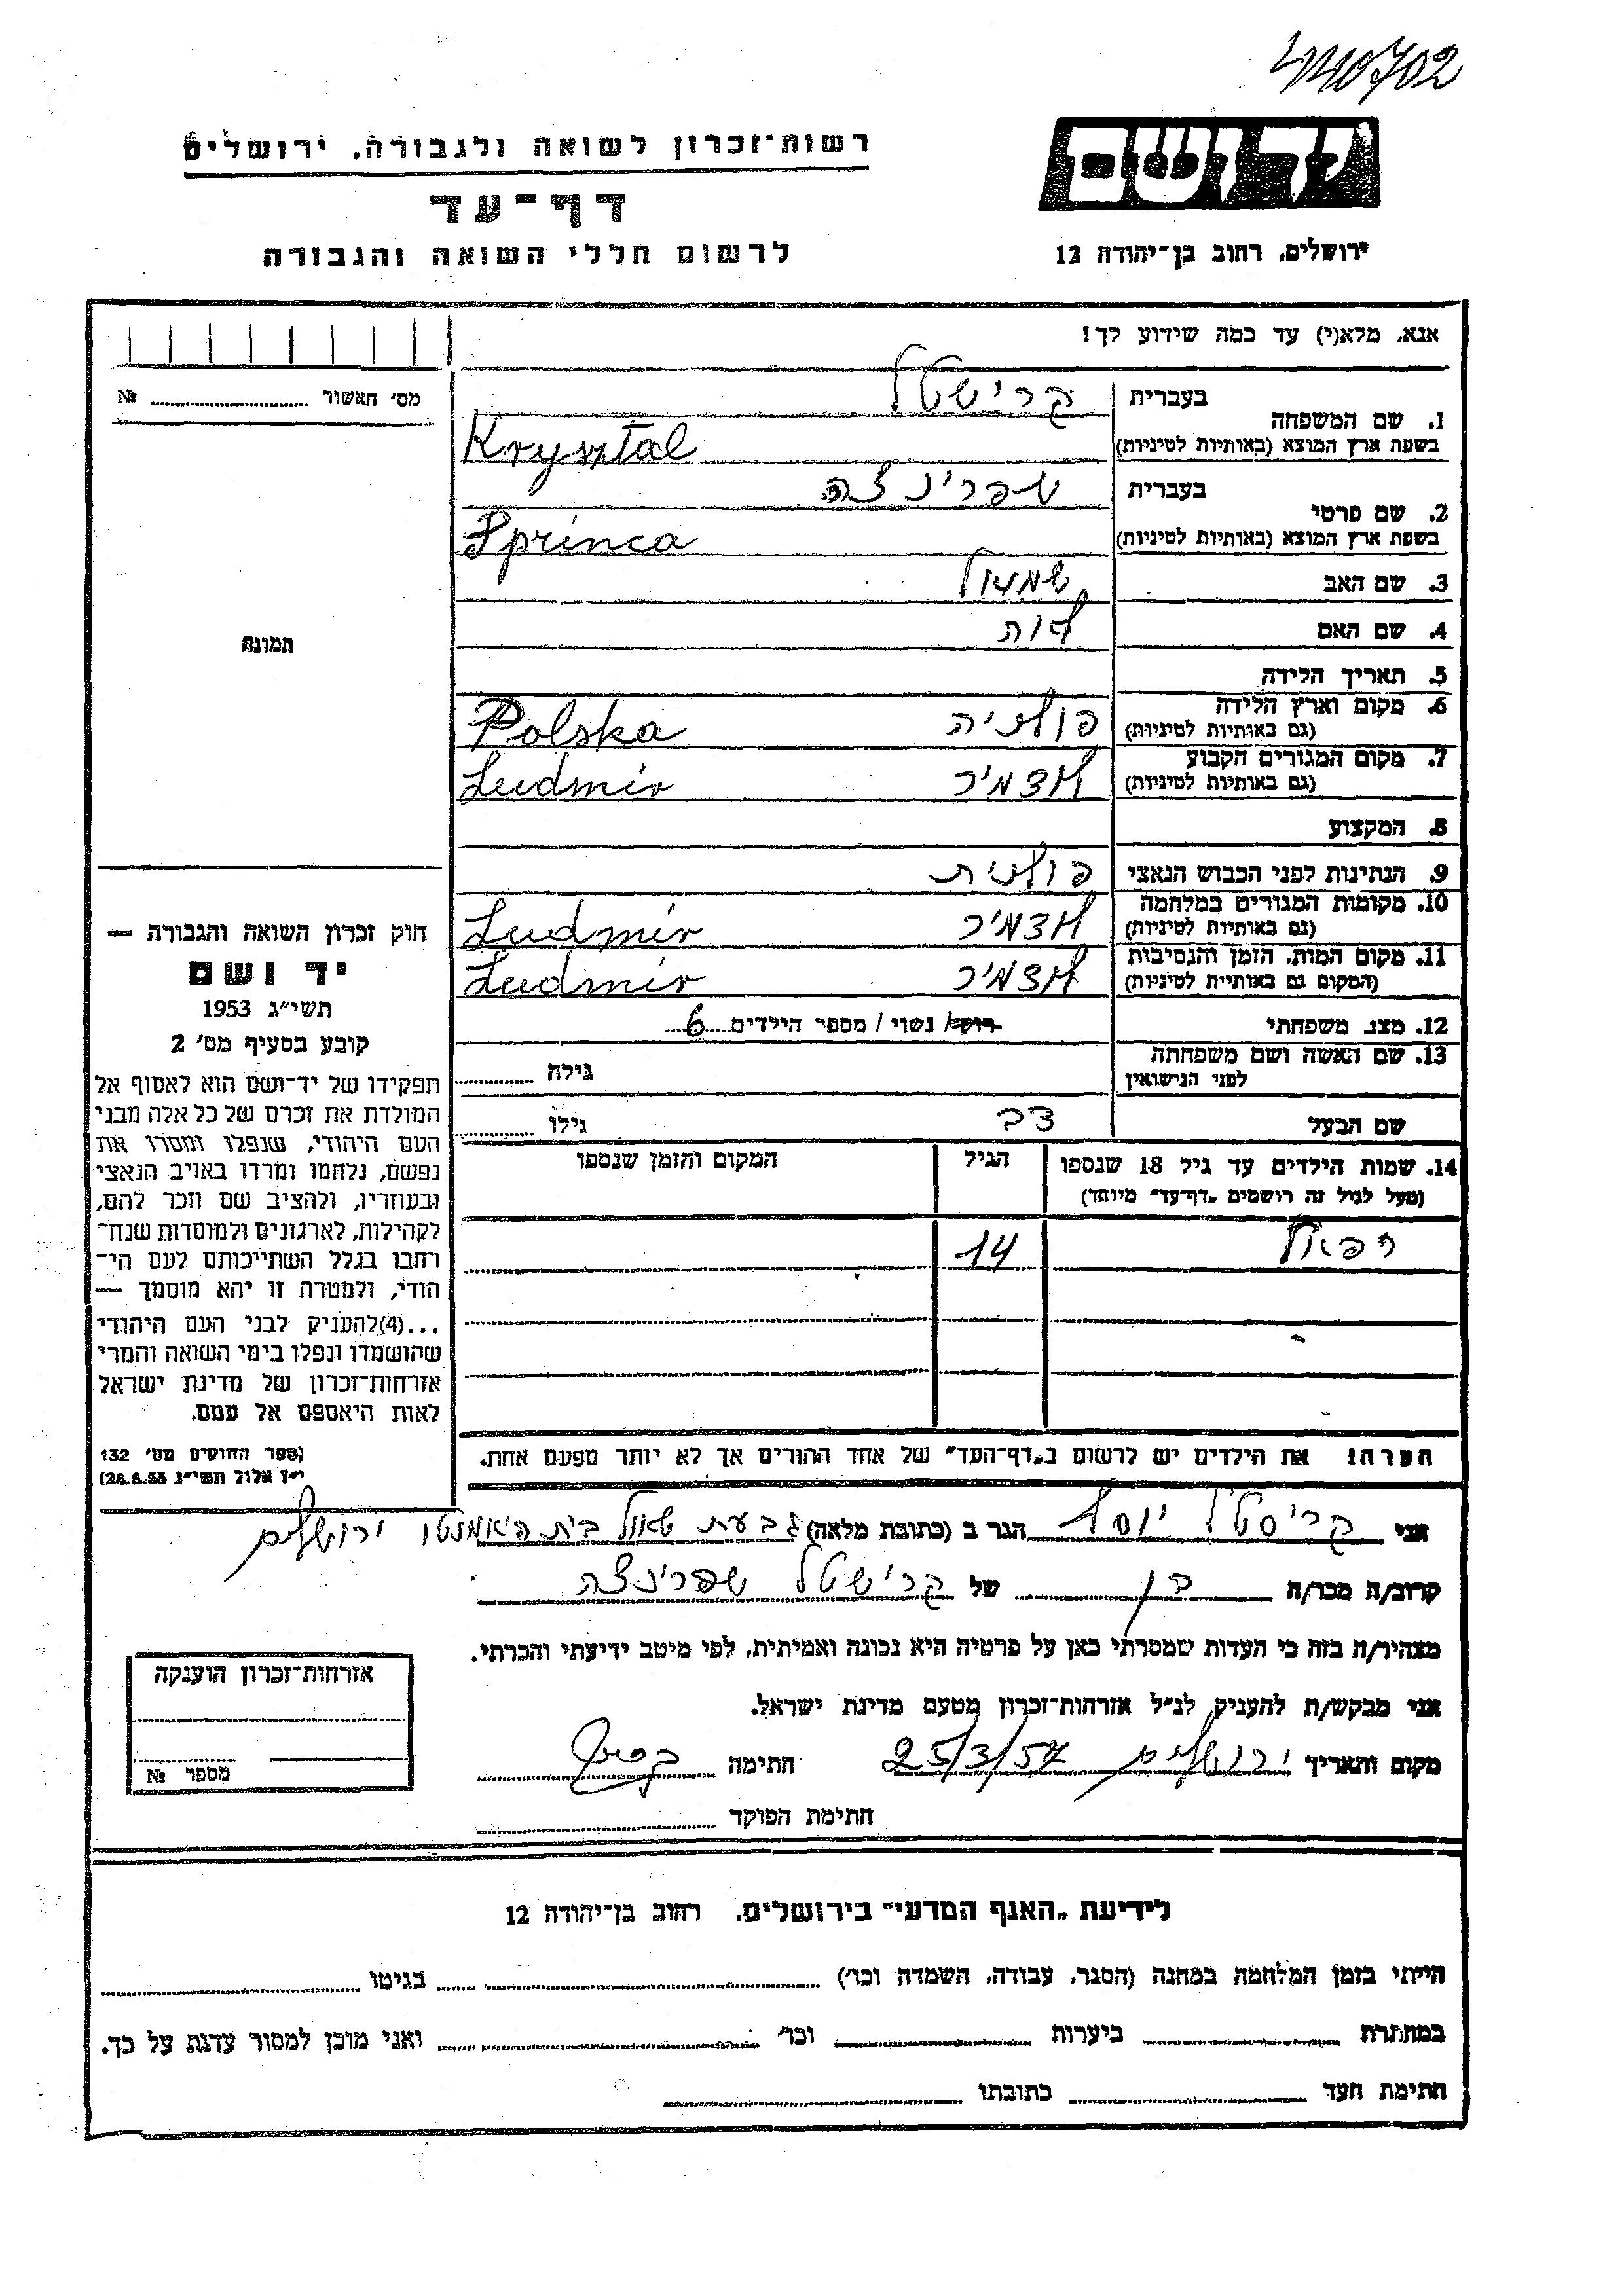 440702
יד ושם
רשות־זכרון לשואה ולגבורה, ירושלים
דף־עד
לרשום חללי השואה והגבורה
ירושלים, רחוב בן־יהודה 12
אנא, מלא(י) עד כמה שידוע לך!
מס׳ האשור ........ №
1. שם המשפחה
בעברית קרישטל
בשפת ארץ המוצא (באותיות לטיניות) Krysztal
2. שם פרטי
בעברית שפרינצה
בשפת ארץ המוצא (באותיות לטיניות) Sprinca
3. שם האב שמואל
4. שם האם
תמונה
5. תאריך הלידה
6. מקום וארץ הלידה
(גם באותיות לטיניות) פולניה Polska
7. מקום המגורים הקבוע
(גם באותיות לטיניות) לודמיר Ludmir
8. המקצוע
9. הנתינות לפני הכבוש הנאצי פולנית
10. מקומות המגורים במלחמה
(גם באותיות לטיניות) Ludmir
11. מקום המות, הזמן והנסיבות
(המקום גם באותיית לטיניות) Ludmir
12. מצב משפחתי רווק/ נשוי / מספר הילדים 6
13. שם האשה ושם משפחתה
לפני הנישואין גילה
שם הבעל דב גילו
14. שמות הילדים עד גיל 18 שנספו
(מעל לגיל זה רושמים „דף־עד״ מיוחד)
הגיל
המקום והזמן שנספו
רפאל 14
הערה! את הילדים יש לרשום ב„דף־העד״ של אחד ההורים אך לא יותר מפעם אחת.
חוק זכרון השואה והגבורה —
יד ושם
תשי״ג 1953
קובע בסעיף מס׳ 2
תפקידו של יד־ושם הוא לאסוף אל
המולדת את זכרם של כל אלה מבני
העם היהודי, שנפלו ומסרו את
נפשם, נלחמו ומרדו באויב הנאצי
ובעוזריו, ולהציב שם וזכר להם,
לקהילות, לארגונים ולמוסדות שנח־
רחבו בגלל השתייכותם לעם הי־
הודי, ולמטרה זו יהא מוסמך —
...(4)להעניק לבני העם היהודי
שהושמדו ונפלו בימי השואה והמרי
אזרחות־זכרון של מדינת ישראל
לאות היאספם אל עמם.
(ספר החוקים מס׳ 132
י״ז אלול תשי״ג 28.8.53)
אני קריסטל יוסף הגר ב (כתובת מלאה) גבעת שאול בית ירושלים
קרוב/ה מכר/ה בן של קרישטל שפרינצה
מצהיר/ה בזה כי העדות שמסרתי כאן על פרטיה היא נכונה ואמיתית, לפי מיטב ידיעתי והכרתי.
אני מבקש/ת להעניק לנ״ל אזרחות־זכרון מטעם מדינת ישראל.
מקום ותאריך ירושלים 25/3/57 חתימה
חתימת הפוקד
אזרחות־זכרון הוענקה
מספר №
לידיעת „האגף המדעי״ בירושלים, רחוב בן־יהודה 12
הייתי בזמן המלחמה במחנה (הסגר, עבודה, השמדה וכו׳) ........ בגיטו ........
במחתרת ........ ביערות ........ וכו׳ ........ ואני מוכן למסור עדות על כך.
חתימת העד ........ כתובתו ........